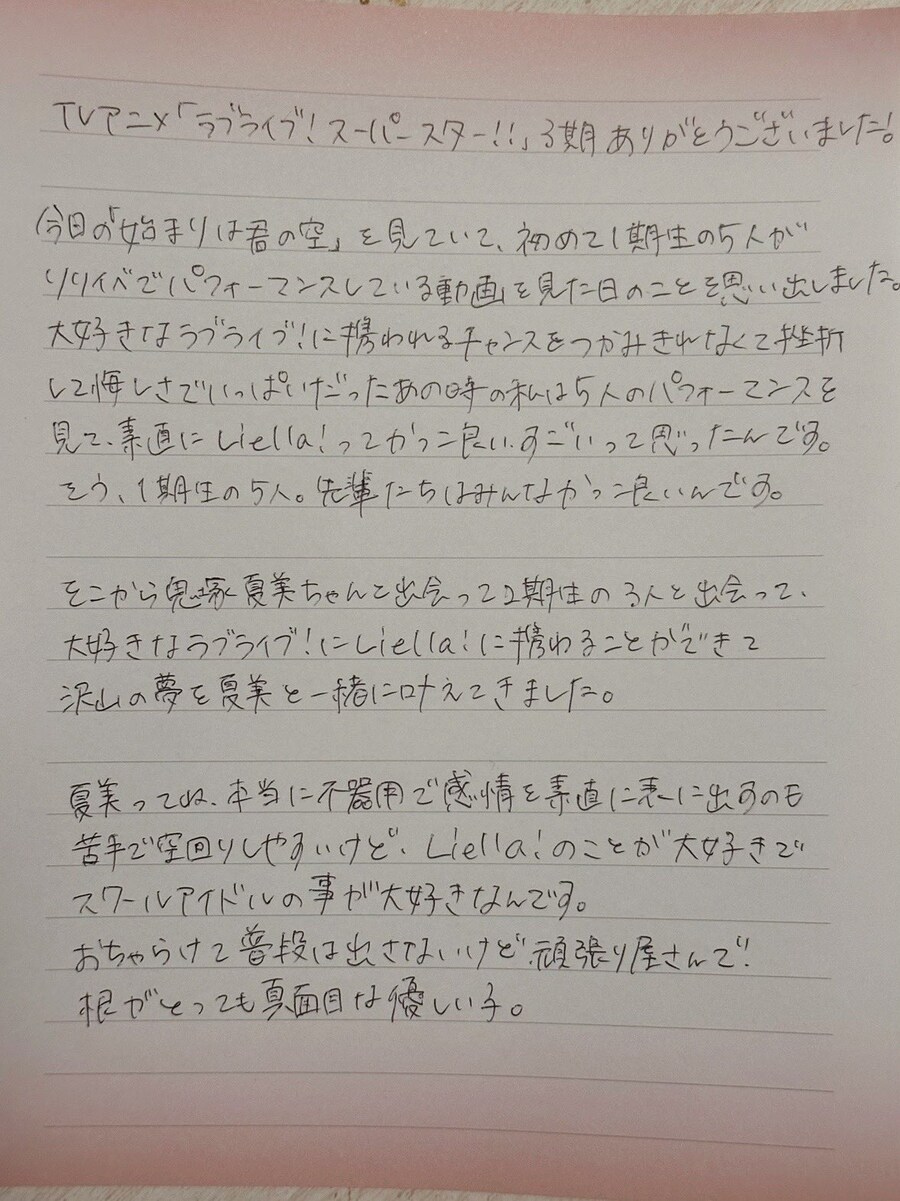 TVアニメ「ラブライブ!スーパースター!!」3期ありがとうございました!
今日の「始まりは君の空」を見ていて、初めて1期生の5人が
リリイベでパフォーマンスしている動画を見た日のことを思い出しました。
大好きなラブライブ!に携われるチャンスをつかみきれなくて挫折
して悔しさでいっぱいだったあの時の私は5人のパフォーマンスを
見て、素直にLiella!ってかっこ良い、すごいって思ったんです。
そう、1期生の5人。先輩たちはみんなかっこ良いんです。
そこから鬼塚夏美ちゃんと出会って2期生の3人と出会って、
大好きなラブライブ!にLiella!に携わることができて
沢山の夢を夏美と一緒に叶えてきました。
夏美ってね、本当に不器用で感情を素直に表に出すのも
苦手で空回りしやすいけど、Liella!のことが大好きで
スクールアイドルの事が大好きなんです。
おちゃらけて普段は出さないけど頑張り屋さんで
根がとっても真面目な優しい子。